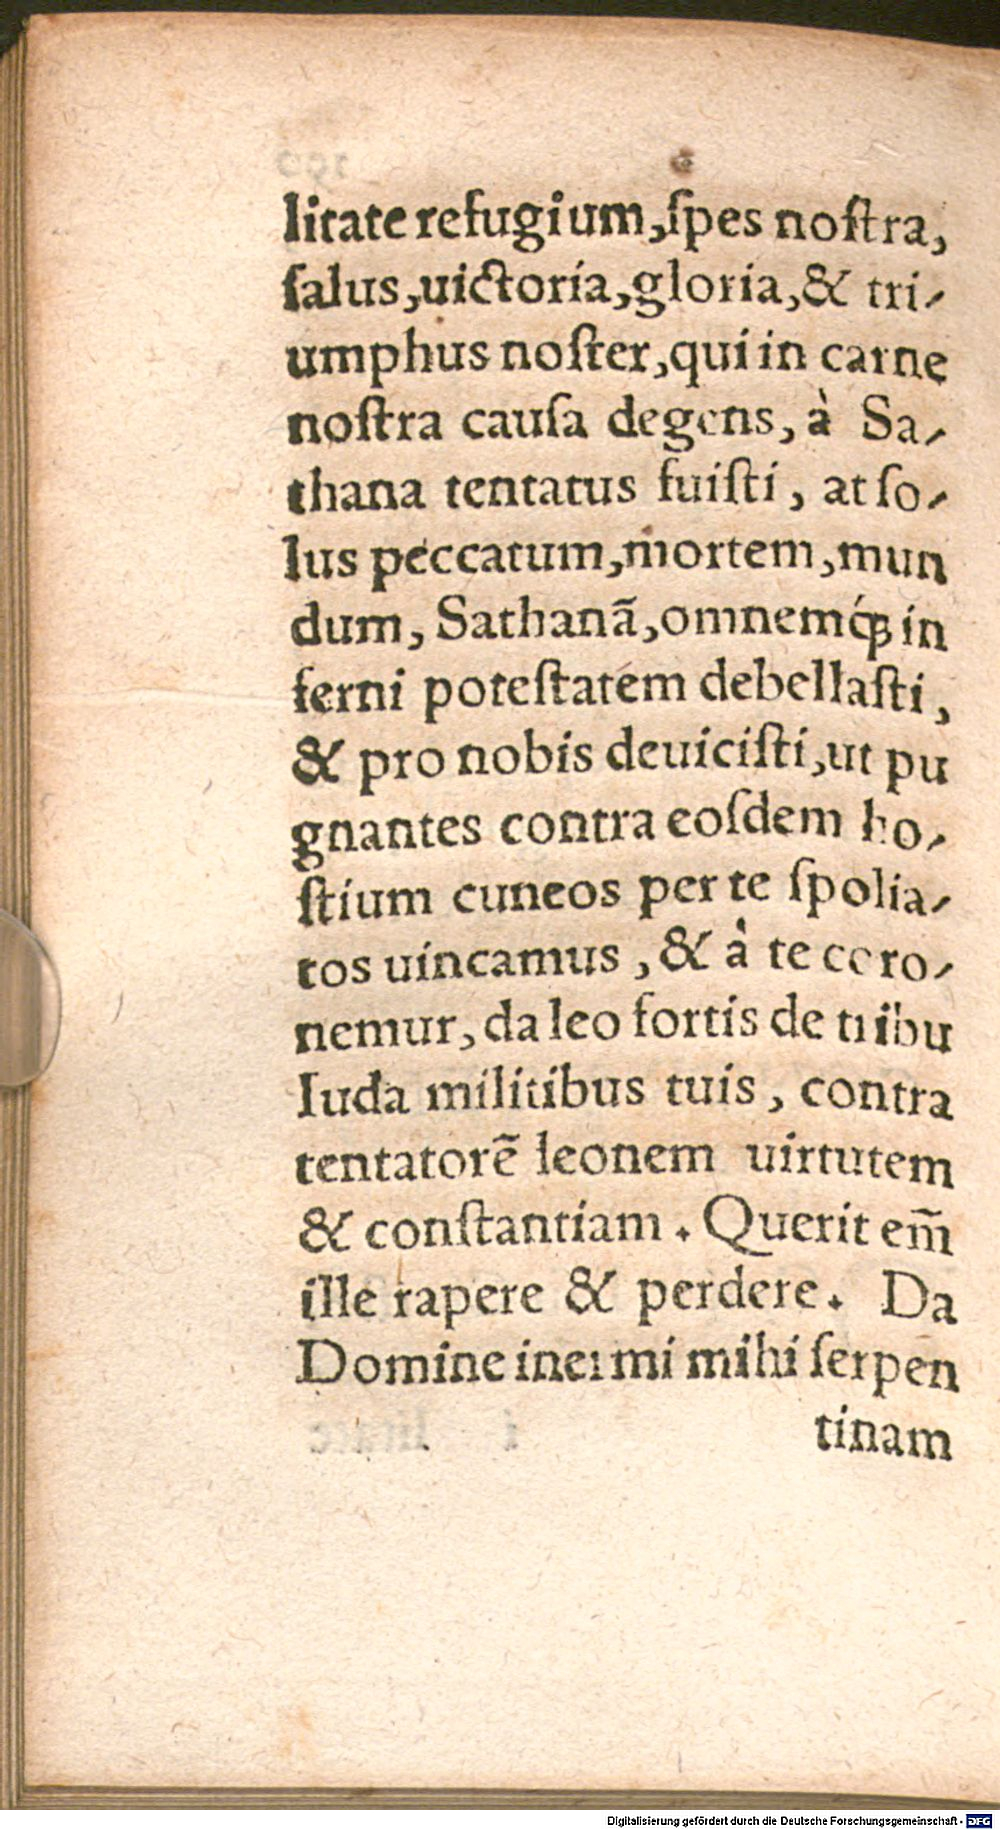 litate refugium,ſpes noſtra,
ſalus,uictoria,gloria,& tri-
umphus noſter,qui in carne
noſtra cauſa degens, à Sa-
thana tentatus fuiſti, at ſo-
lus peccatum,mortem,mun
dum, Sathanã,omnemq́ꝫ in
ferni poteſtatem debellaſti,
& pro nobis deuiciſti,ut pu
gnantes contra eoſdem ho-
ſtium cuneos per te ſpolia-
tos uincamus, & à te coro-
nemur, da leo fortis de tribu
Iuda militibus tuis, contra
tentatorẽ leonem uirtutem
& conſtantiam. Querit em̃
ille rapere & perdere. Da
Domine inermi mihi ſerpen
tinam
Digitalisierung gefördert durch die Deutsche Forschungsgemeinschaft - DFG